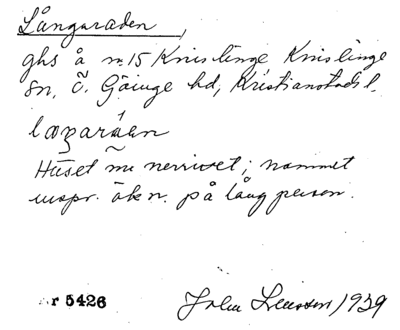 Långaraden,
ghs å nr 15 Knislinge Knislinge
sn, Ö. Göinge hd, Kristianstads l.
Huset nu nerrivet; namnet
urspr. ökn. på lång person.
r 5426 John 1939